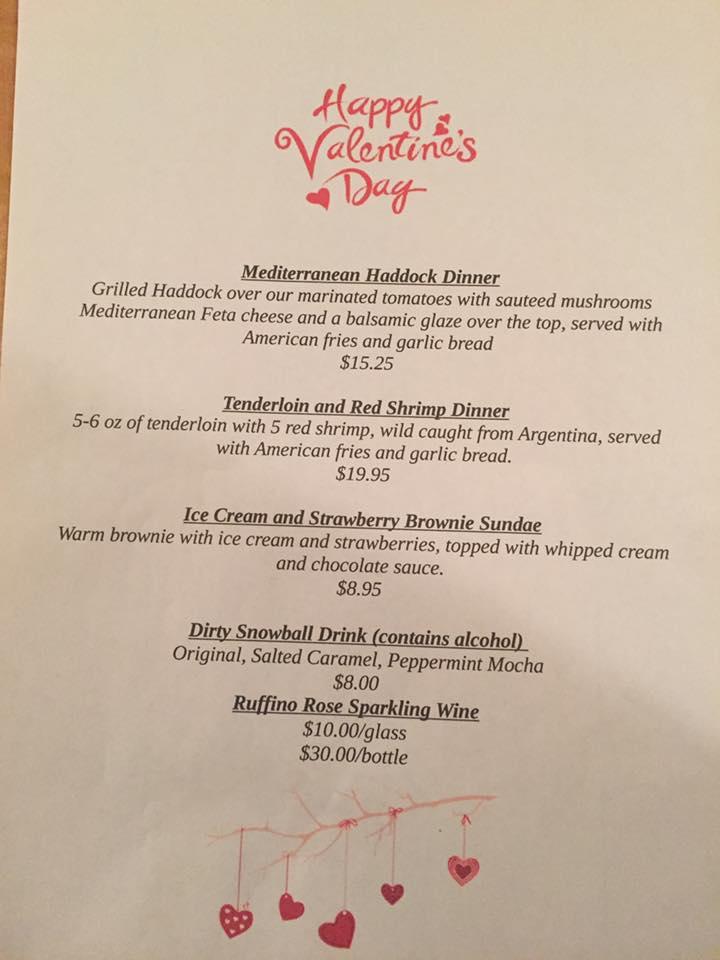 Happy
Valentine's
Day
Mediterranean Haddock Dinner
Grilled Haddock over our marinated tomatoes with sauteed mushrooms
Mediterranean Feta cheese and a balsamic glaze over the top, served with
American fries and garlic bread
$15.25
Tenderloin and Red Shrimp Dinner
5-6 oz of tenderloin with 5 red shrimp, wild caught from Argentina, served
with American fries and garlic bread.
$19.95
Ice Cream and Strawberry Brownie Sundae
Warm brownie with ice cream and strawberries, topped with whipped cream
and chocolate sauce.
$8.95
Dirty Snowball Drink (contains alcohol)
Original, Salted Caramel, Peppermint Mocha
$8.00
Ruffino Rose Sparkling Wine
$10.00/glass
$30.00/bottle